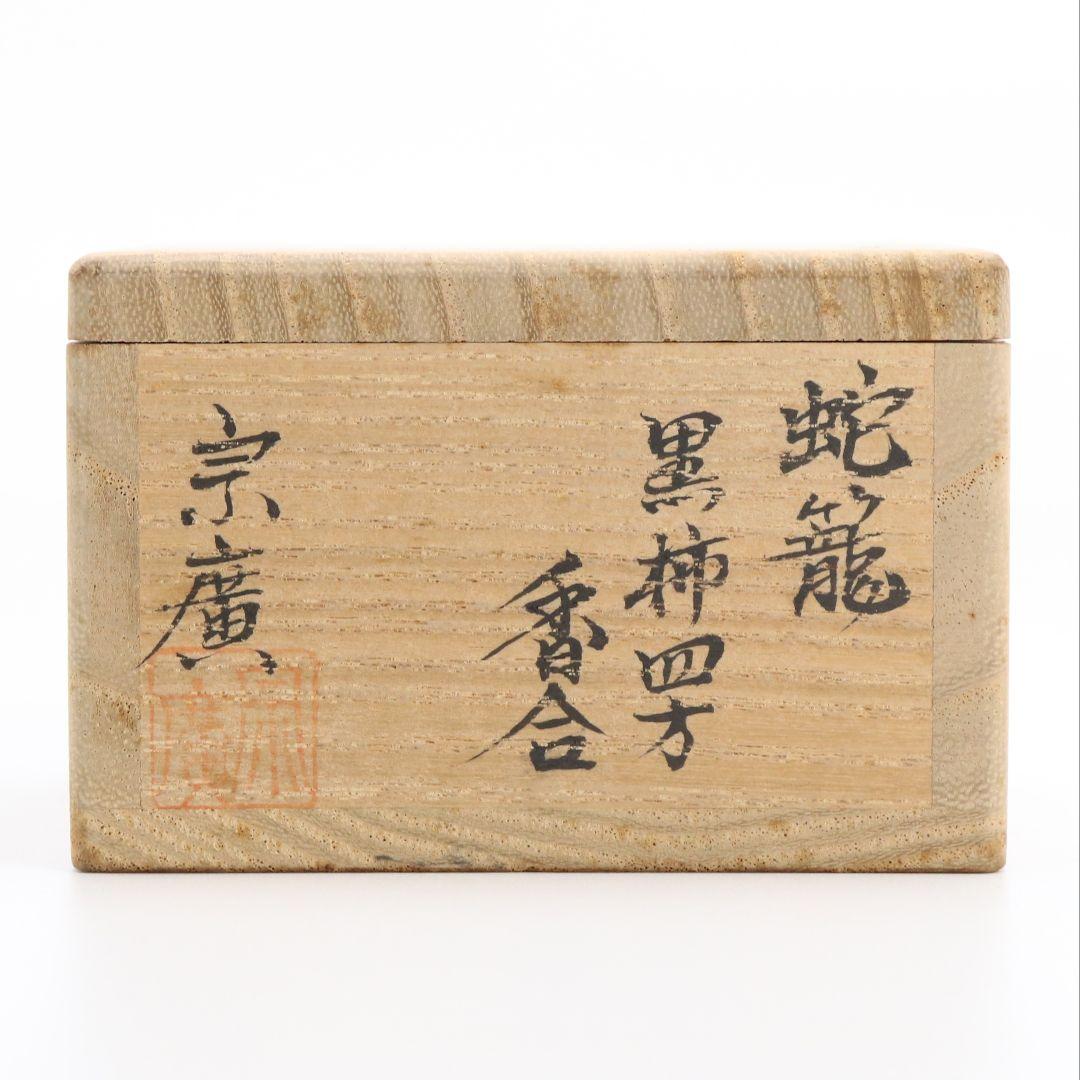 蛇籠
黒柿四方
香合
宗廣